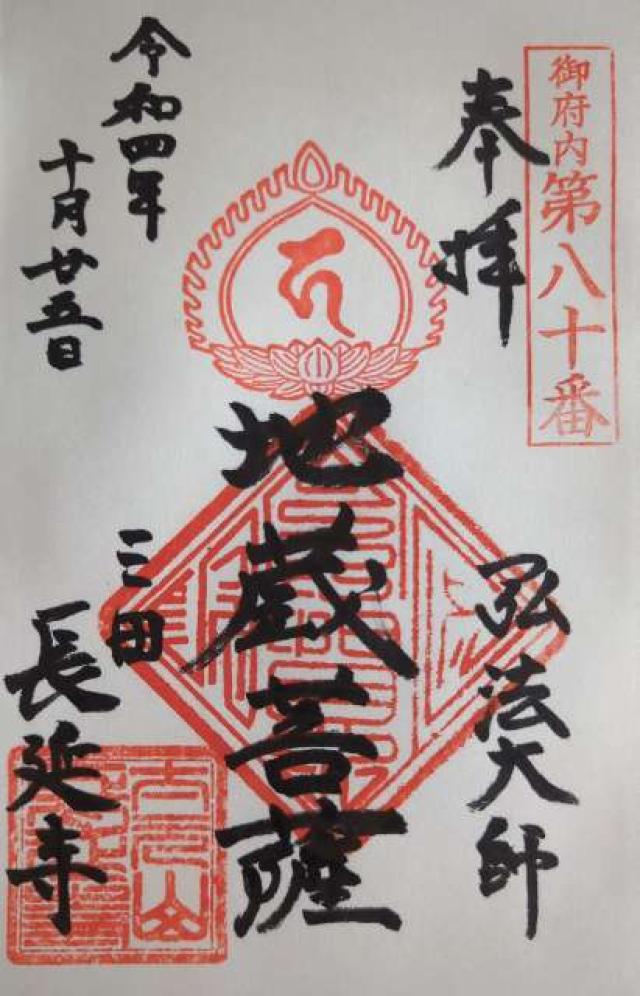 御府内第八十番
奉拝
弘法大師
地蔵菩薩
令和四年
十月廿五日
三田
長延寺